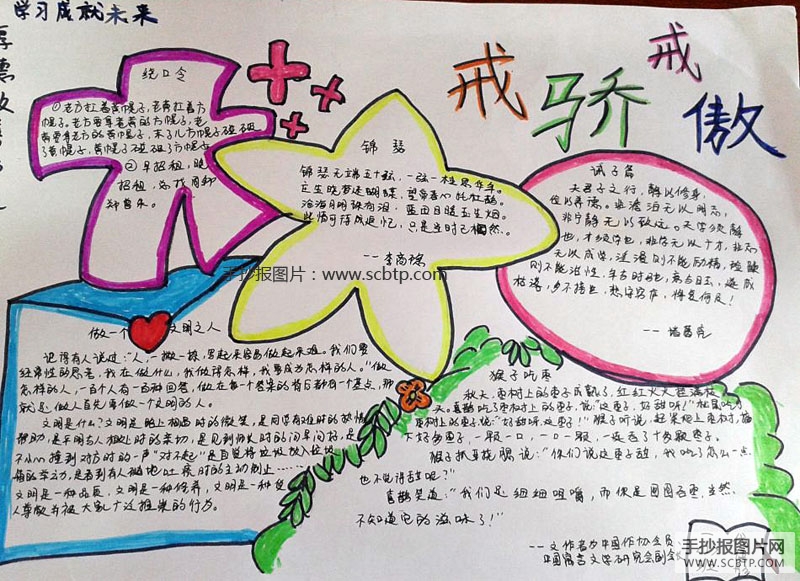 学习成就未来
厚德
戒骄
戒傲
绕口令
①老方扛着黄幌子,老黄扛着方
幌子。老方要拿老黄的方幌子,老
黄要拿老方的黄幌子,末了儿方幌子碰破
了黄幌子,黄幌子碰破了方幌子。
②早招租,晚
招租,总找周邹
郑曾朱。
锦瑟
锦瑟无端五十弦,一弦一柱思华年。
庄生晓梦迷蝴蝶,望帝春心托杜鹃。
沧海月明珠有泪,蓝田日暖玉生烟。
此情可待成追忆,只是当时已惘然。
--李商隐
诫子篇
夫君子之行,静以修身,
俭以养德。非澹泊无以明志,
非宁静无以致远。夫学须静
也,才须学也,非学无以广才,非志
无以成学。淫漫则不能励精,险躁
则不能治性。年与时驰,意与日去,遂成
枯落,多不接世,悲守穷庐,将复何及!
--诸葛亮
手抄报图片:www.scbtp.com
做一个 文明之人
记得有人说过:“人,一撇一捺,写起来容易做起来难。我们要
经常性的思考,我在做什么,我做得怎样,我要成为怎样的人。”做
怎样的人,一百个人有一百种回答,但在每一个答案的背后都有一个基点,那
就是:做人首先要做一个文明的人。
文明是什么?文明是路上相遇时的微笑,是同学有难时的热情
帮助,是平时与人相处时的亲切,是见到师长时的问早问好,是
不小心撞到对方时的一声“对不起”,是自觉将垃圾放入垃圾
箱的举动,是看到有人随地吐痰时的主动制止……
文明是一种品质,文明是一种修养,文明是一种受
人尊敬并被大家广泛推崇的行为。
猴子吃枣
秋天,枣树上的枣子成熟了,红红火火挂满枝
天。喜鹊吃了枣树上的枣子,说:“这枣子,好甜呀!”松鼠吃了
枣树上的枣子说:“好甜呀,这枣子!”猴子听说,赶紧爬上枣树,摘
下好多枣子,一口一口,一连吞了十多颗枣子。
猴子抓耳挠腮说:“你们说这枣子甜,我吃了怎么一点
也不觉得甜呢?”
喜鹊笑道:“我们是细细咀嚼,而你是囫囵吞枣,当然
不知道它的滋味了!”
--文作者为中国作协会员、
中国寓言文学研究会副会
手抄报图片网
WWW.SCBTP.COM